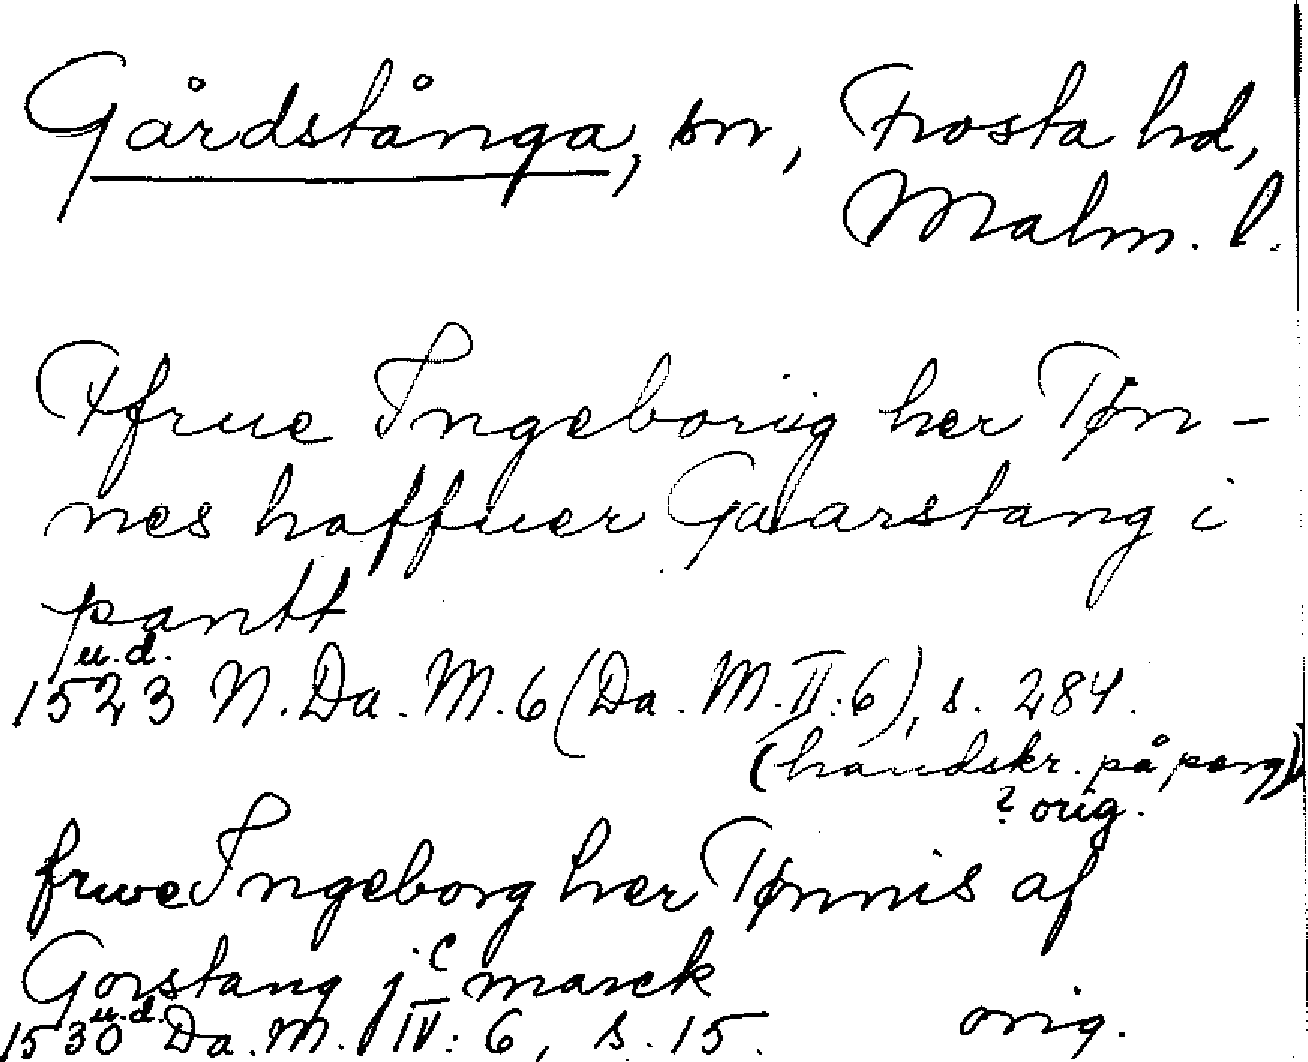 Gårdstånga, sn, Frosta hd,
Malm. l.
Ffrue Ingeborig her Tøn-
nes haffuer Gaarstang i
pantt
u.d.
1523 N. Da. M. 6 (Da. M. II: 6), s. 284.
(handskr. på perg)
? orig.
frwe Ingeborg her Tønnis af
Gorstang jᶜ marck
u.d.
1530 Da. M. IV: 6, s. 15. orig.